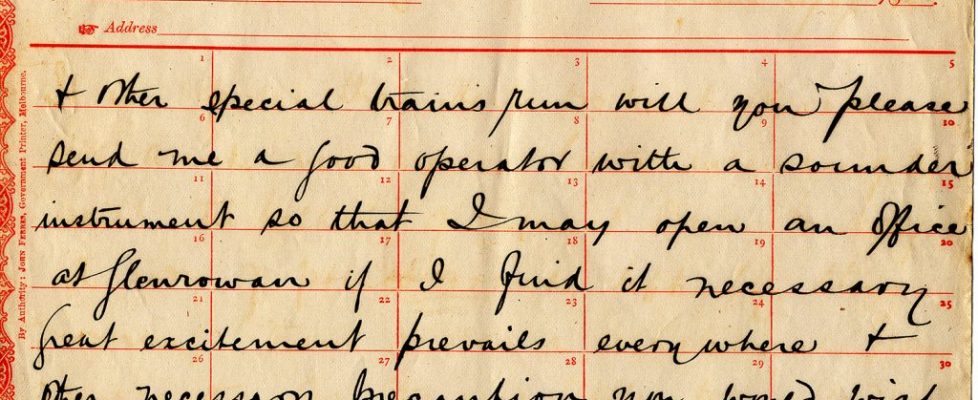 Address
1 2 3 4 5
& other special trains run will you please
6 7 8 9 10
send me a good operator with a sounder
11 12 13 14 15
instrument so that I may open an office
16 17 18 19 20
at Glenrowan if I find it necessary
21 22 23 24 25
Great excitement prevails everywhere &
26 27 28 29 30
other necessary precaution you would wish
By Authority: JOHN FERRES, Government Printer, Melbourne.